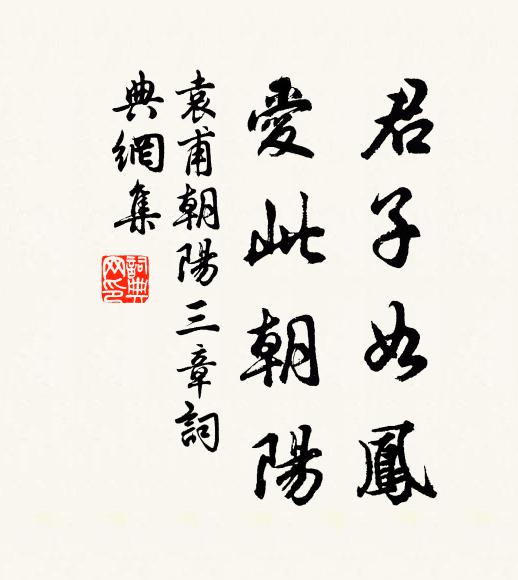 君子如鳳
愛此朝陽
袁甫朝陽三章詞
典網集
詞典网印